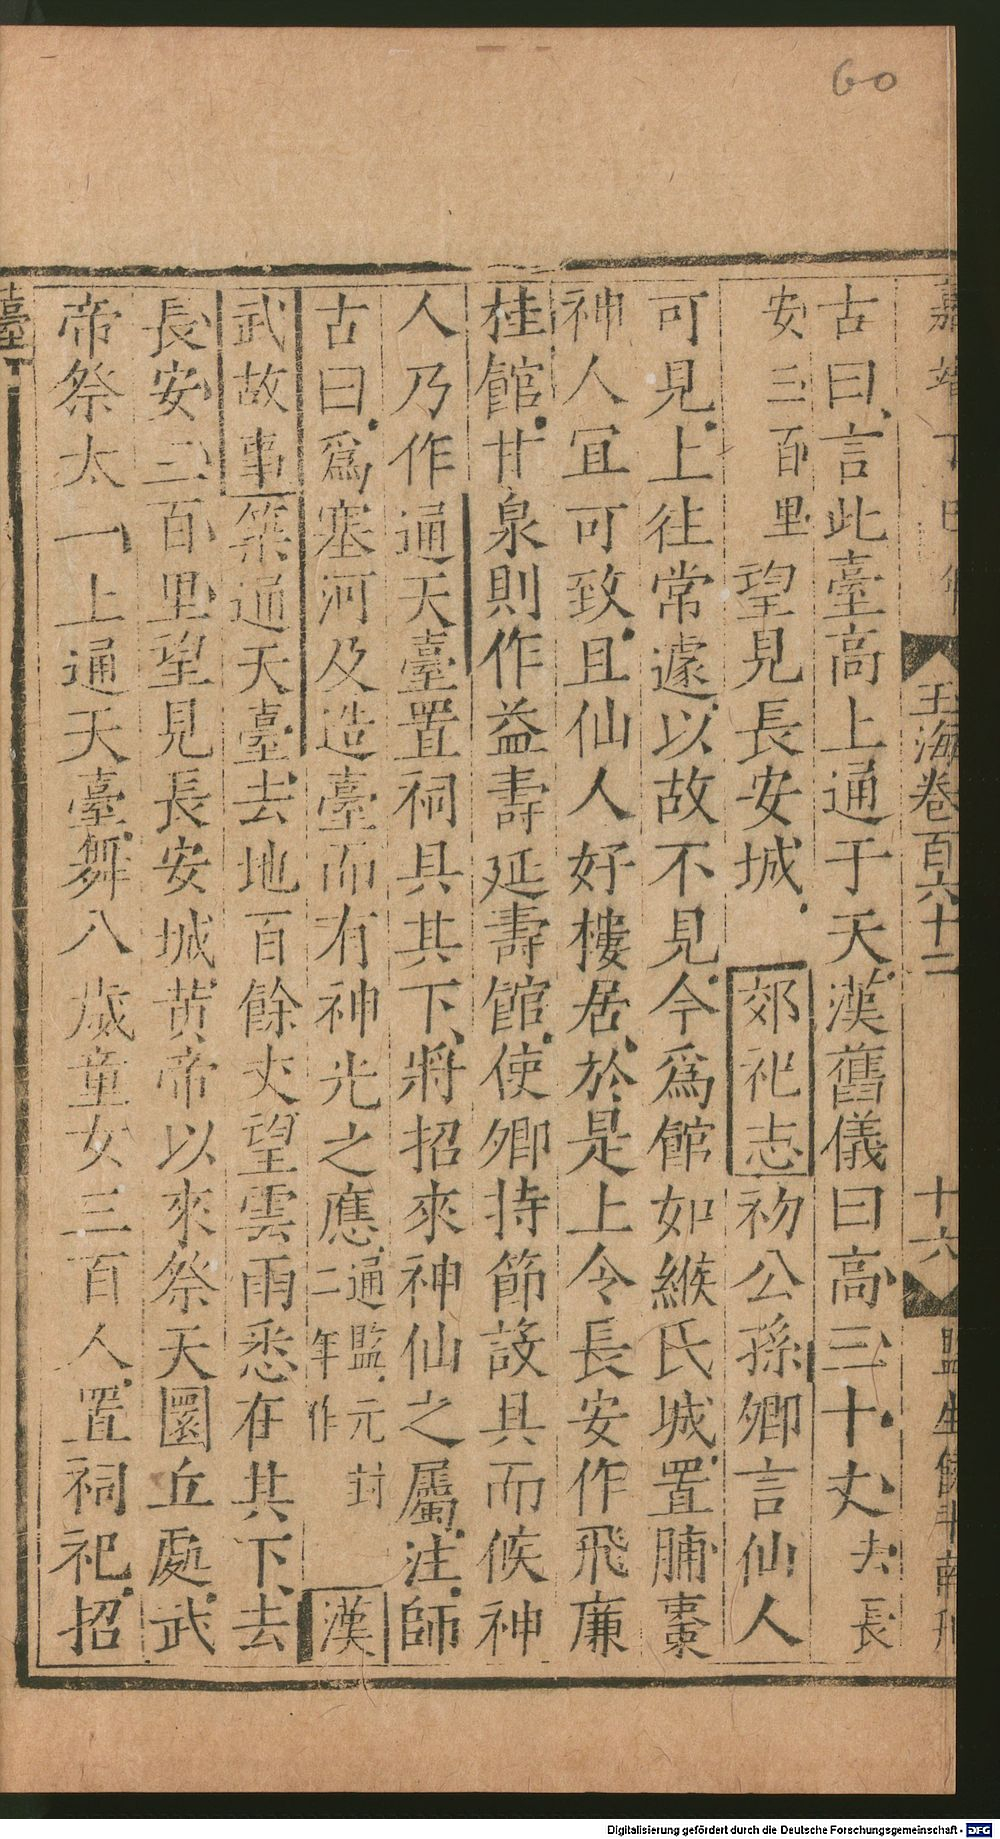 60
玉海卷百六十二
十六
古曰言此臺高上通于天漢舊儀曰高三十丈去長
安三百里望見長安城 郊祀志初公孫卿言仙人
可見上往常遽以故不見今爲館如緱氏城置脯棗
神人宜可致且仙人好樓居於是上令長安作飛廉
桂館甘泉則作益壽延壽館使卿持節設具而候神
人乃作通天臺置祠具其下將招來神仙之屬注師
古曰爲塞河及造臺而有神光之應通監元封二年作 漢
武故事築通天臺去地百餘丈望雲雨悉在其下去
長安三百里望見長安城黄帝以來祭天圜丘處武
帝祭太一上通天臺舞八歲童女三百人置祠祀招
臺
Digitalisierung gefördert durch die Deutsche Forschungsgemeinschaft - DFG